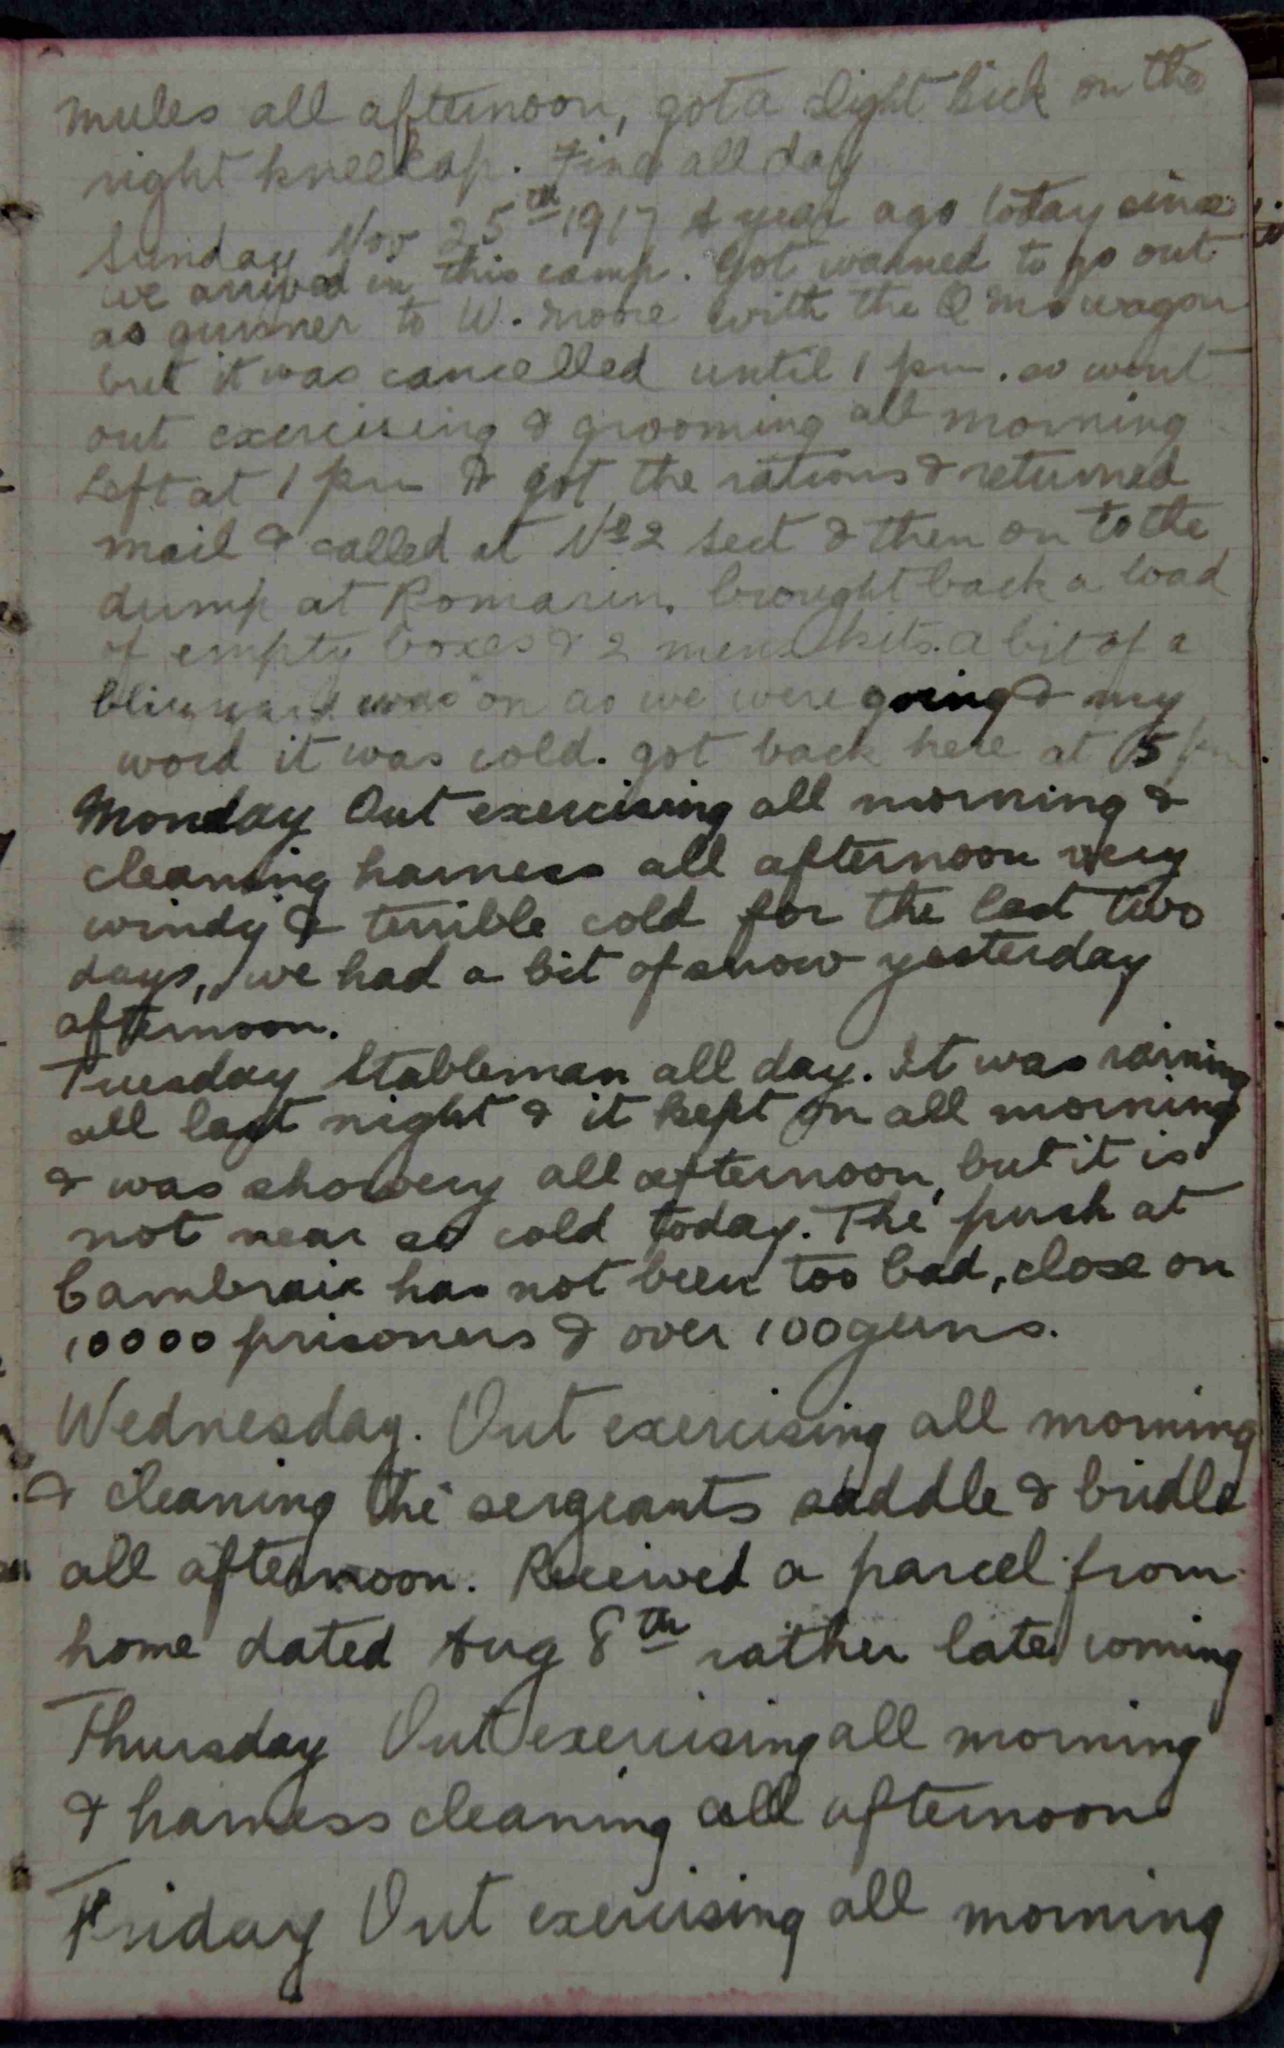 mules all afternoon, got a slight kick on the
right kneekap. Fine all day
Sunday Nov 25th 1917 A year ago today since
we arrived in this camp. Got warned to go out
as gunner to W. Moore with the Q Ms wagon
but it was cancelled until 1 pm. so went
out exercising & grooming all morning
Left at 1 pm & got the rations & returned
mail & called at No 2 Sect & then on to the
dump at Romarin, brought back a load
of empty boxes & 2 mens kits. A bit of a
blizzard was on as we were going & my
word it was cold. got back here at 5 pm
Monday Out exercising all morning &
cleaning harness all afternoon very
windy & terrible cold for the last two
days, we had a bit of snow yesterday
afternoon.
Tuesday Stableman all day. It was raining
all last night & it kept on all morning
& was showery all afternoon, but it is
not near so cold today. The push at
Cambraix has not been too bad, close on
10000 prisoners & over 100 guns.
Wednesday. Out exercising all morning
& cleaning the sergeants saddle & bridle
all afternoon. Received a parcel from
home dated Aug 8th rather late coming
Thursday Out exercising all morning
& harness cleaning all afternoon
Friday Out exercising all morning